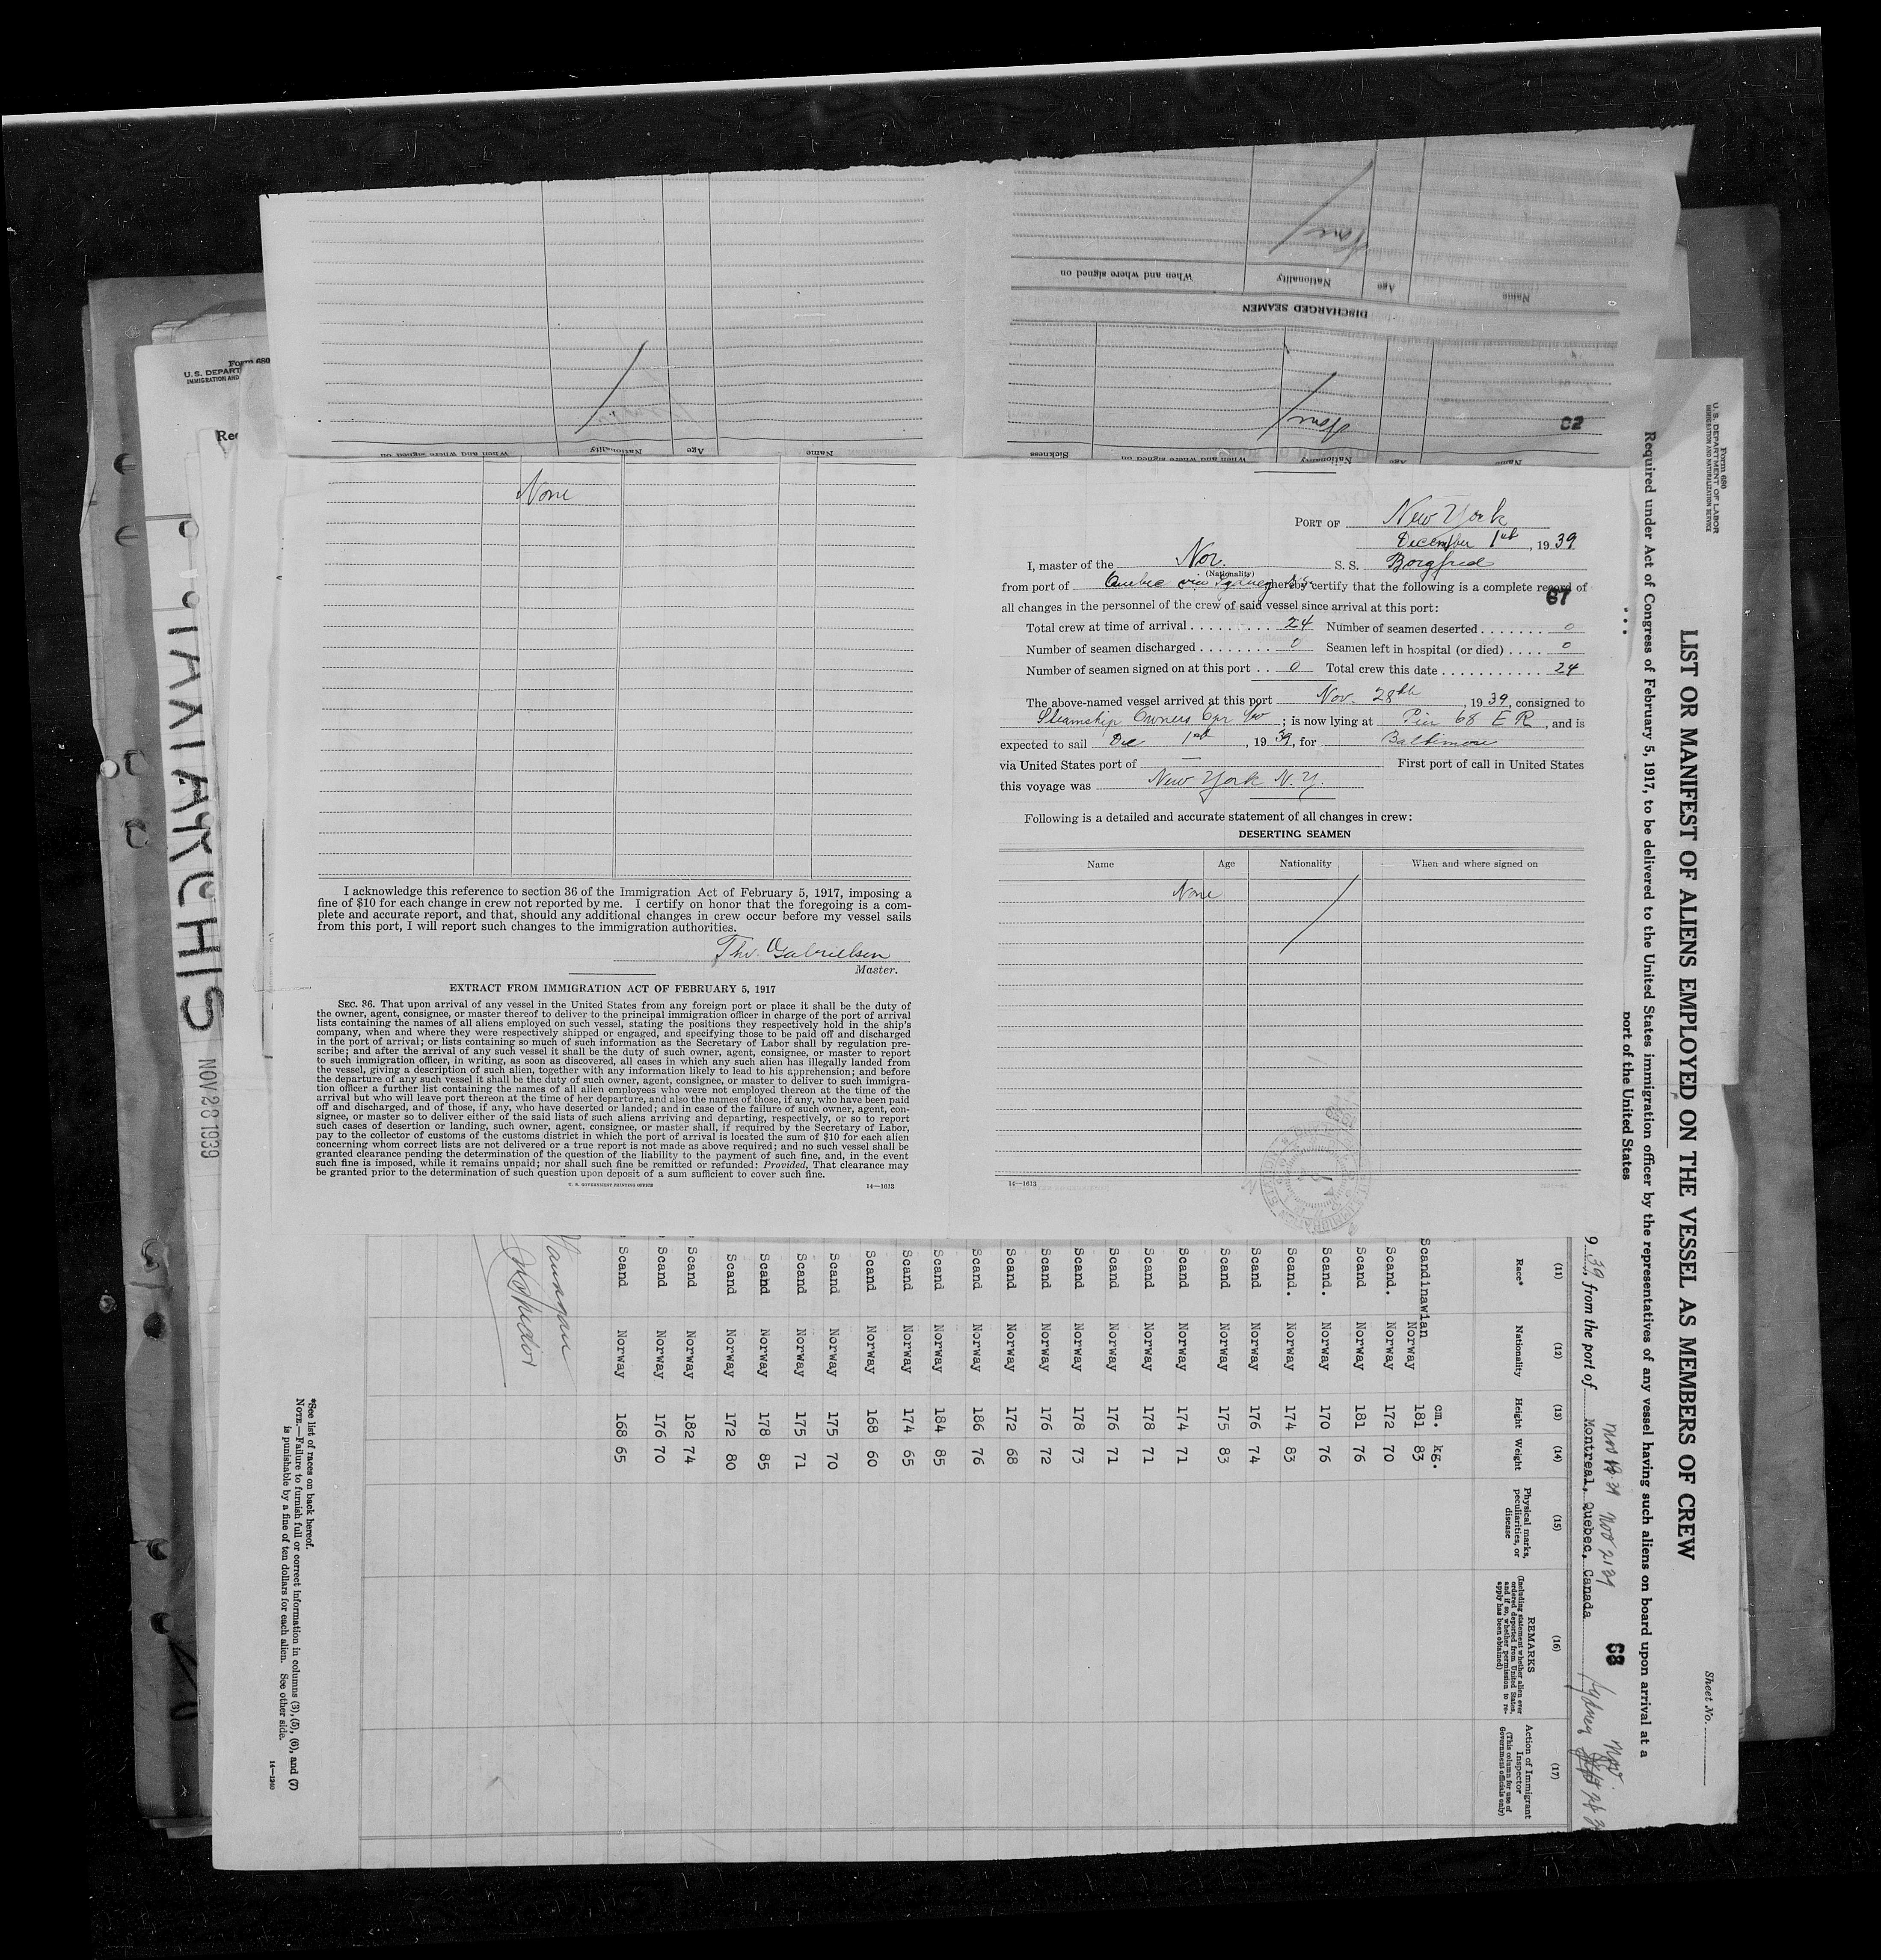 Form 680
U.S. DEPART
IMMIGRATION AND
Name
Age
Nationality
When and where signed on
None
DISCHARGED SEAMEN
Name
Age
Nationality
When and where signed on
Sickness
None
62
Name
Age
Nationality
When and where signed on
None
I acknowledge this reference to section 36 of the Immigration Act of February 5, 1917, imposing a
fine of $10 for each change in crew not reported by me. I certify on honor that the foregoing is a com-
plete and accurate report, and that, should any additional changes in crew occur before my vessel sails
from this port, I will report such changes to the immigration authorities.
Thv. Gabrielsen
Master.
EXTRACT FROM IMMIGRATION ACT OF FEBRUARY 5, 1917
SEC. 36. That upon arrival of any vessel in the United States from any foreign port or place it shall be the duty of
the owner, agent, consignee, or master thereof to deliver to the principal immigration officer in charge of the port of arrival
lists containing the names of all aliens employed on such vessel, stating the positions they respectively hold in the ship's
company, when and where they were respectively shipped or engaged, and specifying those to be paid off and discharged
in the port of arrival; or lists containing so much of such information as the Secretary of Labor shall by regulation pre-
scribe; and after the arrival of any such vessel it shall be the duty of such owner, agent, consignee, or master to report
to such immigration officer, in writing, as soon as discovered, all cases in which any such alien has illegally landed from
the vessel, giving a description of such alien, together with any information likely to lead to his apprehension; and before
the departure of any such vessel it shall be the duty of such owner, agent, consignee, or master to deliver to such immigra-
tion officer a further list containing the names of all alien employees who were not employed thereon at the time of the
arrival but who will leave port thereon at the time of her departure, and also the names of those, if any, who have been paid
off and discharged, and of those, if any, who have deserted or landed; and in case of the failure of such owner, agent, con-
signee, or master so to deliver either of the said lists of such aliens arriving and departing, respectively, or so to report
such cases of desertion or landing, such owner, agent, consignee, or master shall, if required by the Secretary of Labor,
pay to the collector of customs of the customs district in which the port of arrival is located the sum of $10 for each alien
concerning whom correct lists are not delivered or a true report is not made as above required; and no such vessel shall be
granted clearance pending the determination of the question of the liability to the payment of such fine, and, in the event
such fine is imposed, while it remains unpaid; nor shall such fine be remitted or refunded: Provided, That clearance may
be granted prior to the determination of such question upon deposit of a sum sufficient to cover such fine.
U. S. GOVERNMENT PRINTING OFFICE 14—1613
PORT OF New York
December 1st, 1939
I, master of the Nor. S. S. Borgfred
(Nationality)
from port of Quebec via Sydney hereby certify that the following is a complete record of
67
all changes in the personnel of the crew of said vessel since arrival at this port:
Total crew at time of arrival 24 Number of seamen deserted 0
Number of seamen discharged 0 Seamen left in hospital (or died) 0
Number of seamen signed on at this port 0 Total crew this date 24
The above-named vessel arrived at this port Nov. 28th, 1939, consigned to
Steamship Owners Opr Co; is now lying at Pier 68 E R, and is
expected to sail Dec 1st, 1939, for Baltimore
via United States port of — First port of call in United States
this voyage was New York N.Y.
Following is a detailed and accurate statement of all changes in crew:
DESERTING SEAMEN
Name Age Nationality When and where signed on
None
14—1613
NOV 28 1939
Form 680
U. S. DEPARTMENT OF LABOR
IMMIGRATION AND NATURALIZATION SERVICE
Sheet No.
LIST OR MANIFEST OF ALIENS EMPLOYED ON THE VESSEL AS MEMBERS OF CREW
Required under Act of Congress of February 5, 1917, to be delivered to the United States immigration officer by the representatives of any vessel having such aliens on board upon arrival at a
port of the United States
68
Nov 21 39
939 from the port of Montreal, Quebec, Canada Sydney Nov.
(11) (12) (13) (14) (15) (16) (17)
Race* Nationality Height Weight Physical marks, peculiarities, or disease REMARKS (Including statement whether alien ever ordered deported from United States, and if so, whether permission to reapply has been obtained) Action of Immigrant Inspector (This column for use of Government officials only)
cm. kg.
Scandinawian Norway 181 83
Scand. Norway 172 70
Scand Norway 181 76
Scand. Norway 170 76
Scand. Norway 174 83
Scand Norway 176 74
Scand Norway 175 83
Scand Norway 174 71
Scand Norway 178 71
Scand Norway 176 71
Scand Norway 178 73
Scand Norway 176 72
Scand Norway 172 68
Scand Norway 186 76
Scand Norway 184 85
Scand Norway 174 65
Scand Norway 168 60
Scand Norway 175 70
Scand Norway 175 71
Scand Norway 178 85
Scand Norway 172 80
Scand Norway 182 74
Scand Norway 176 70
Scand Norway 168 65
*See list of races on back hereof.
NOTE.—Failure to furnish full or correct information in columns (3), (5), (6), and (7)
is punishable by a fine of ten dollars for each alien. See other side.
14—1240